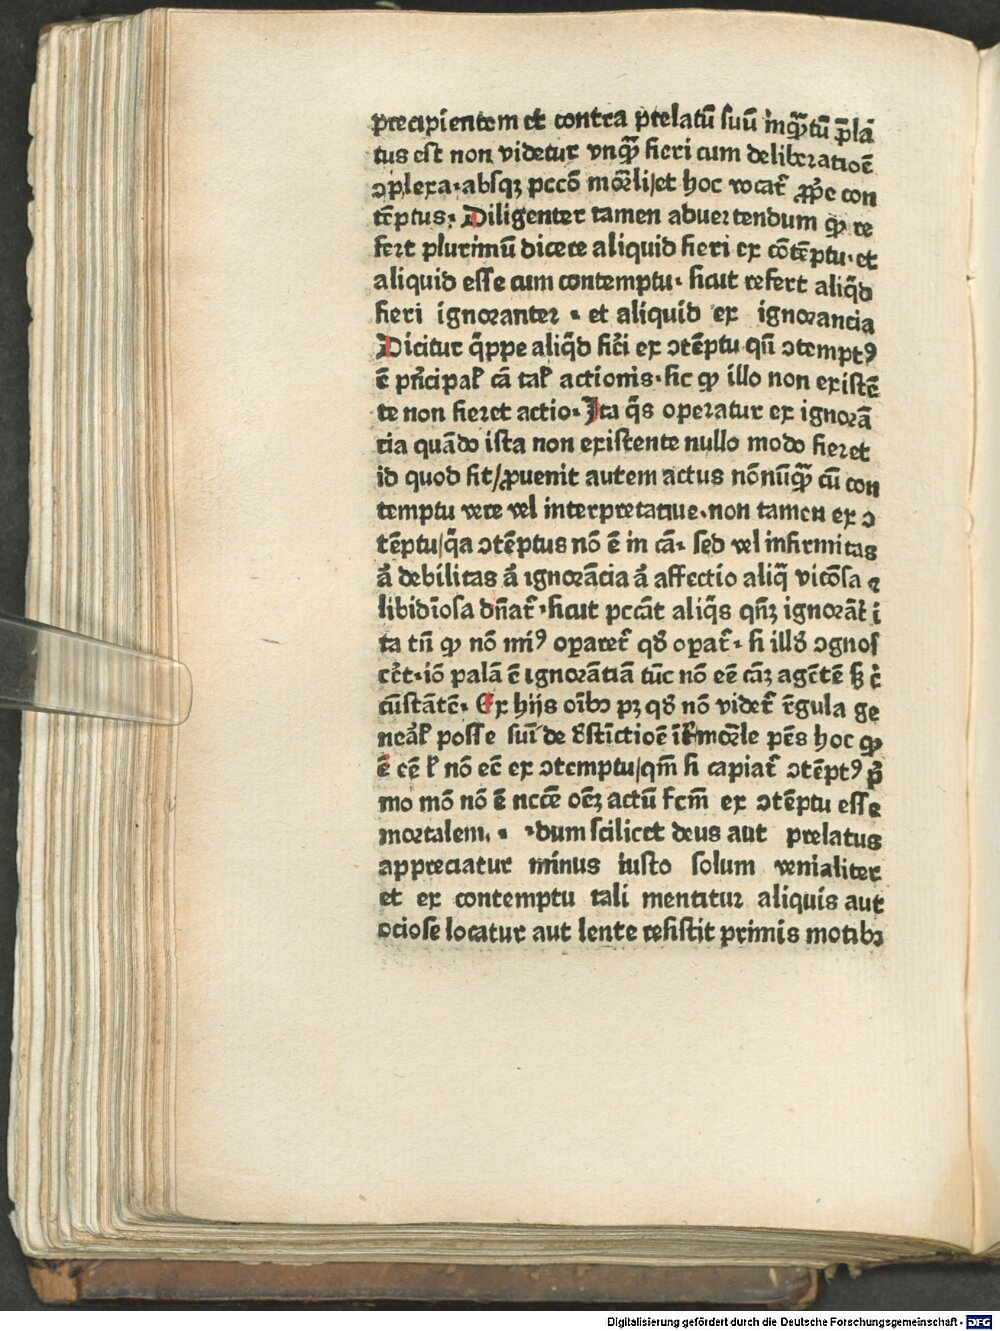 precipientem et contra prelatū suū inꝙ̄tū p̄lā
tus est non videtur vnꝙ̄ fieri cum deliberatioē
ↄplexa·absqꝫ pccō mōrli/et hoc vocat̄ ꝓp̄e con
tēptus: Diligenter tamen aduertendum ꝙ re
fert plurimū dicere aliquid fieri ex cōtēptu·et
aliquid esse cum contemptu· sicut refert aliq̄d
fieri ignoranter · et aliquid ex ignorancia
Dicitur q̄ppe aliq̄d fieri ex ↄtēptu qn̄ ↄtemptꝰ
ē pn̄cipaƚ cā taƚ actionis·sic ꝙ illo non existē
te non fieret actio· Ita q̄s operatur ex ignorā
cia quādo ista non existente nullo modo fieret
id quod fit/ꝓuenit autem actus nōnūꝙ̄ cū con
temptu vere vel interpretatiue·non tamen ex ↄ
tēptu/q̄a ↄtēptus nō ē in cā· sed vel infirmitas
ā debilitas ā ignorācia ā affectio aliq̄ viciōsa ⁊
libidiosa dn̄at̄·sicut pccāt aliq̄s qn̄ꝫ ignorāt̄ i
ta tn̄ ꝙ nō miꝰ oꝑaret̄ qḋ oꝑat̄· si illḋ ↄgnos
cēt·iō palā ē ignorātiā tūc nō eē cāꝫ agētē ẜꝫ c̄
cūstātē· Ex hijs oībꝫ pꝫ qḋ nō videt̄ rēgula ge
neāƚ posse sūi de ḋstīctioē īƚ mōrle pēs hoc ꝙ
ē eē ƚ nō eē ex ↄtemptu/qm̄ si capiat̄ ↄtēptꝰ p̄
mo mō nō ē nccē oēꝫ actū fcm̄ ex ↄtēptu esse
mortalem. · dum scilicet deus aut prelatus
appreciatur minus iusto solum venialiter
et ex contemptu tali mentitur aliquis aut
ociose locatur aut lente resistit primis motibꝫ
Digitalisierung gefördert durch die Deutsche Forschungsgemeinschaft - DFG